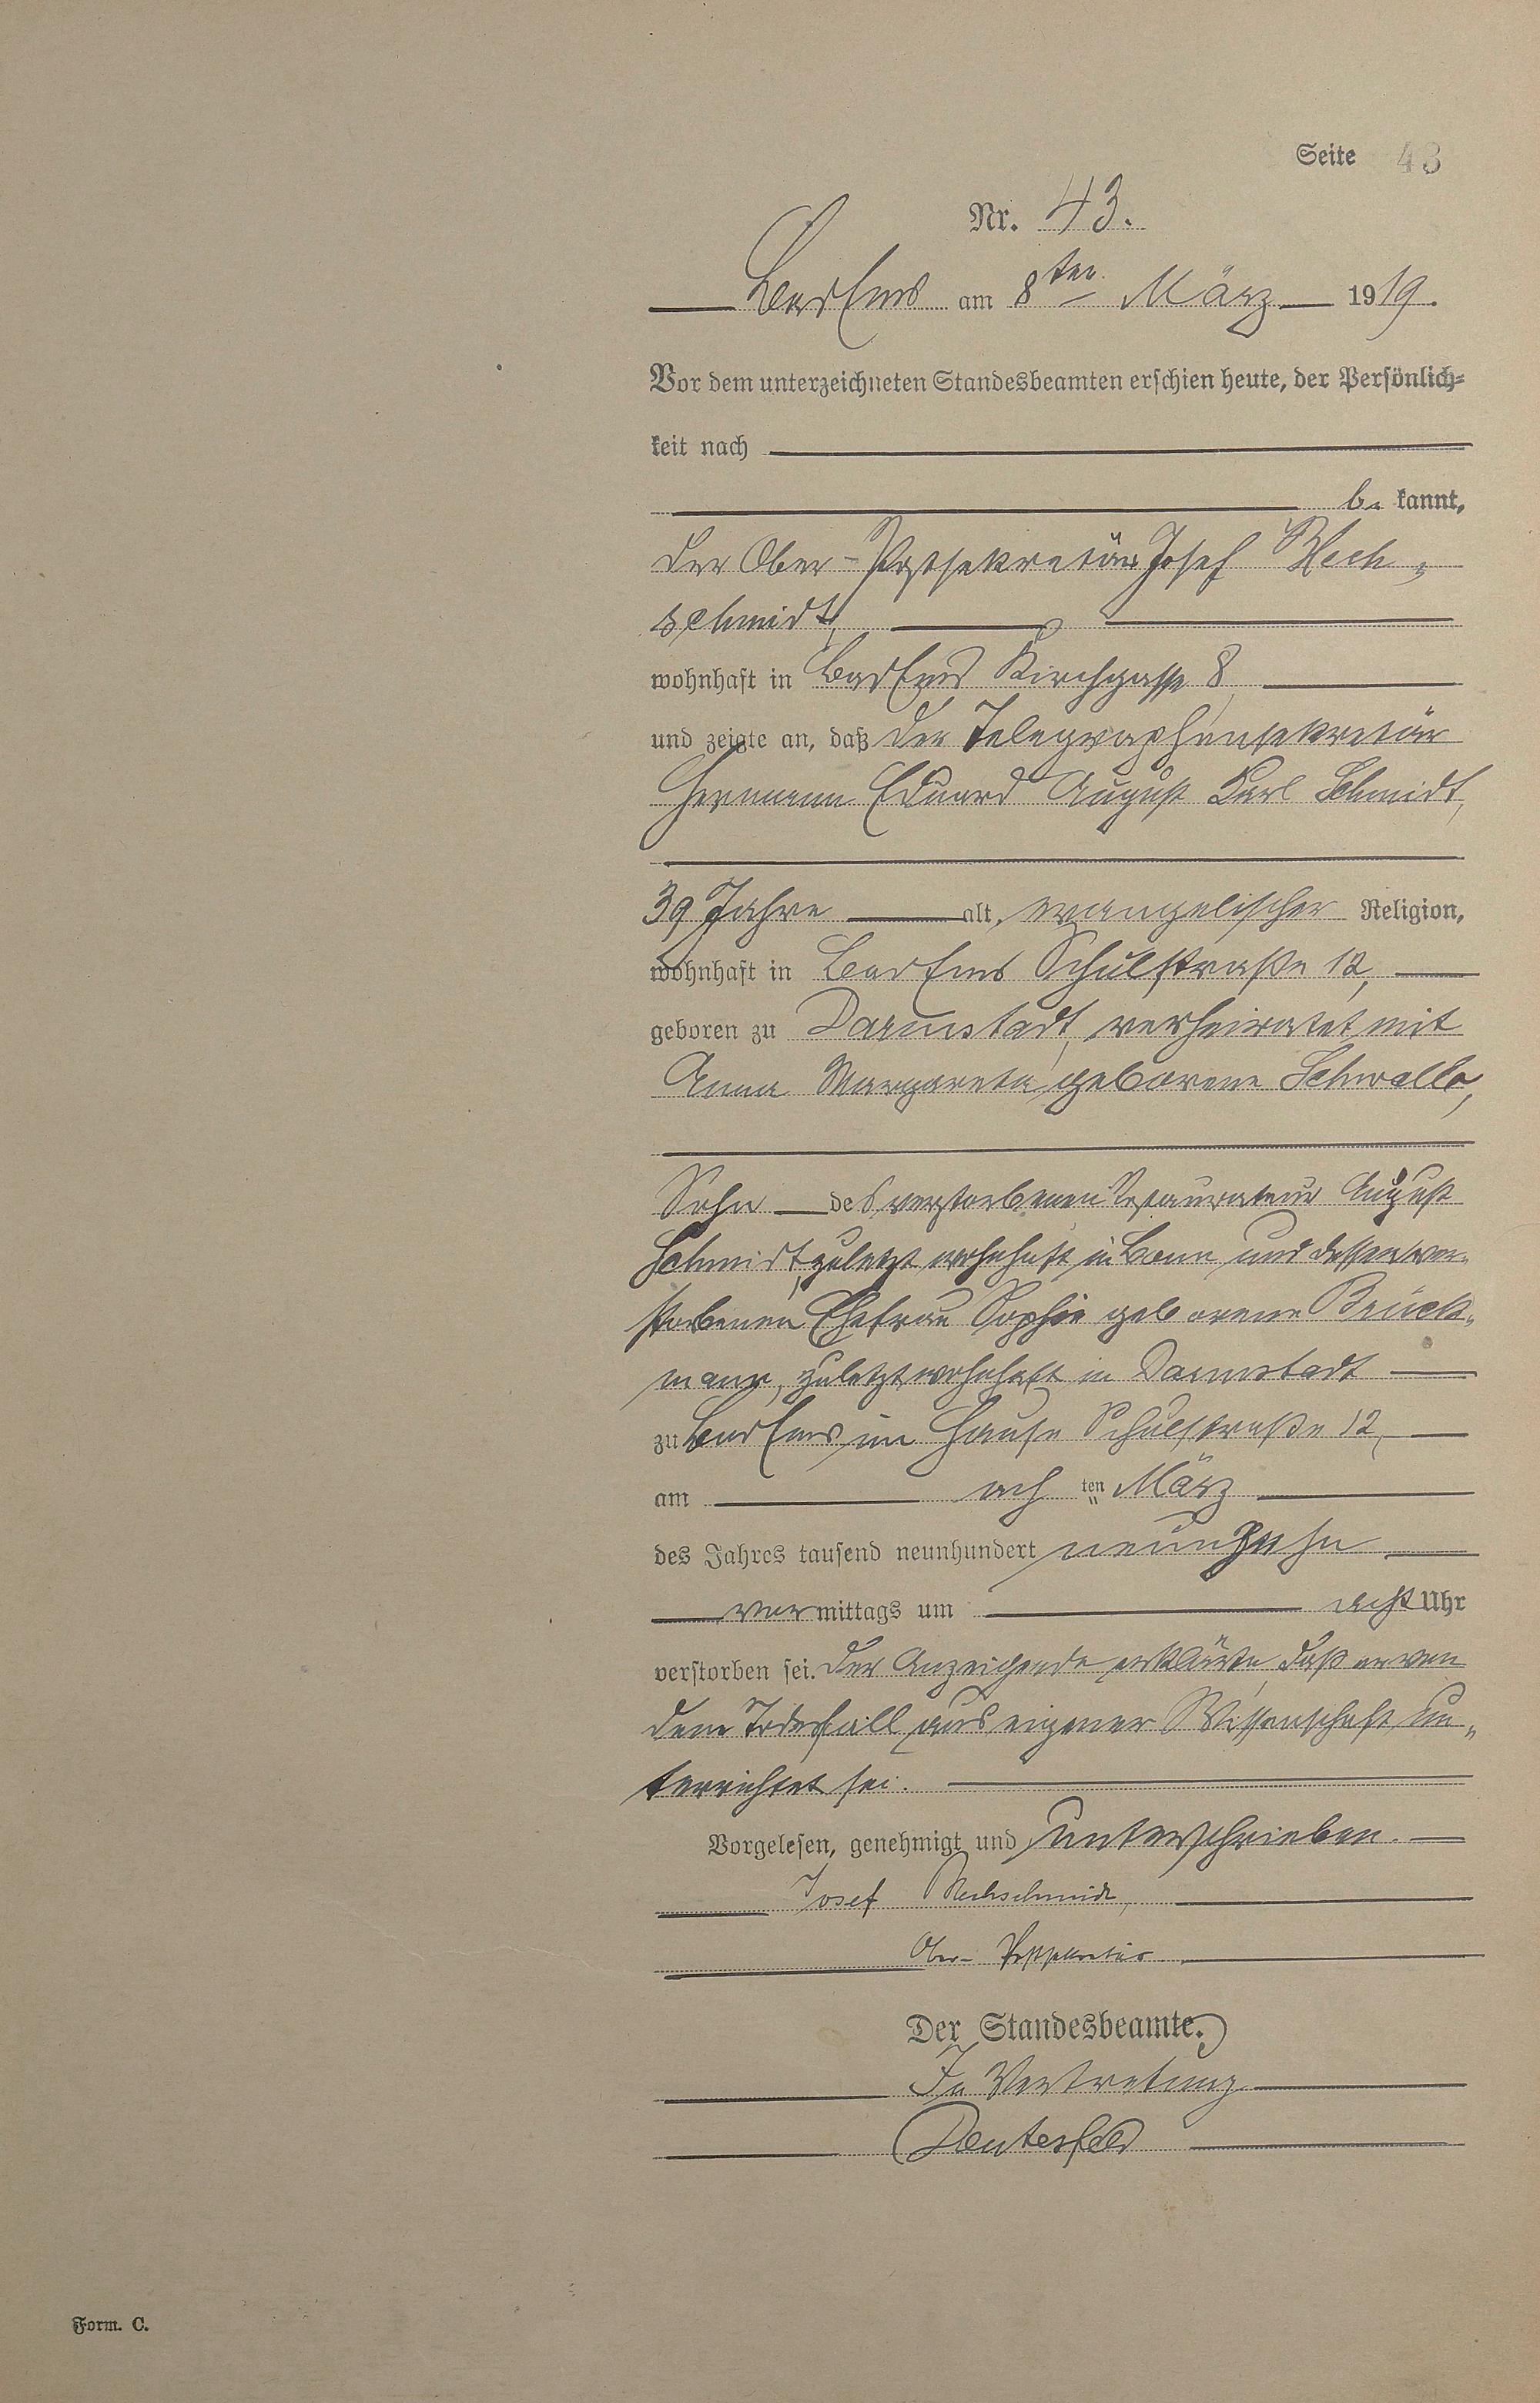 Seite 43
Nr. 43.
Bad Ems am 8ten März 1919.
Vor dem unterzeichneten Standesbeamten erschien heute, der Persönlich-
keit nach
be kannt,
der Ober-Postsekretär Josef Blech-
schmidt,
wohnhaft in Bad Ems Kirchgasse 8
und zeigte an, daß der Telegraphensekretär
Hermann Eduard August Karl Schmidt,
39 Jahre alt, evangelischer Religion,
wohnhaft in Bad Ems Schulstraße 12,
geboren zu Darmstadt, verheiratet mit
Anna Margareta geborene Schwalb,
Sohn des verstorbenen Restaurateurs August
Schmidt, zuletzt wohnhaft in Bonn und dessen ver-
storbenen Ehefrau Sophie geborene Brück-
mann, zuletzt wohnhaft in Darmstadt
zu Bad Ems im Hause Schulstraße 12,
am ach ten März
des Jahres tausend neunhundert neunzehn
vor mittags um acht Uhr
verstorben sei. Der Anzeigende erklärte, daß er von
dem Todesfall aus eigener Wissenschaft un-
terrichtet sei.
Vorgelesen, genehmigt und unterschrieben.
Josef Blechschmidt,
Ober-Postsekretär
Der Standesbeamte.
In Vertretung
Form. C.